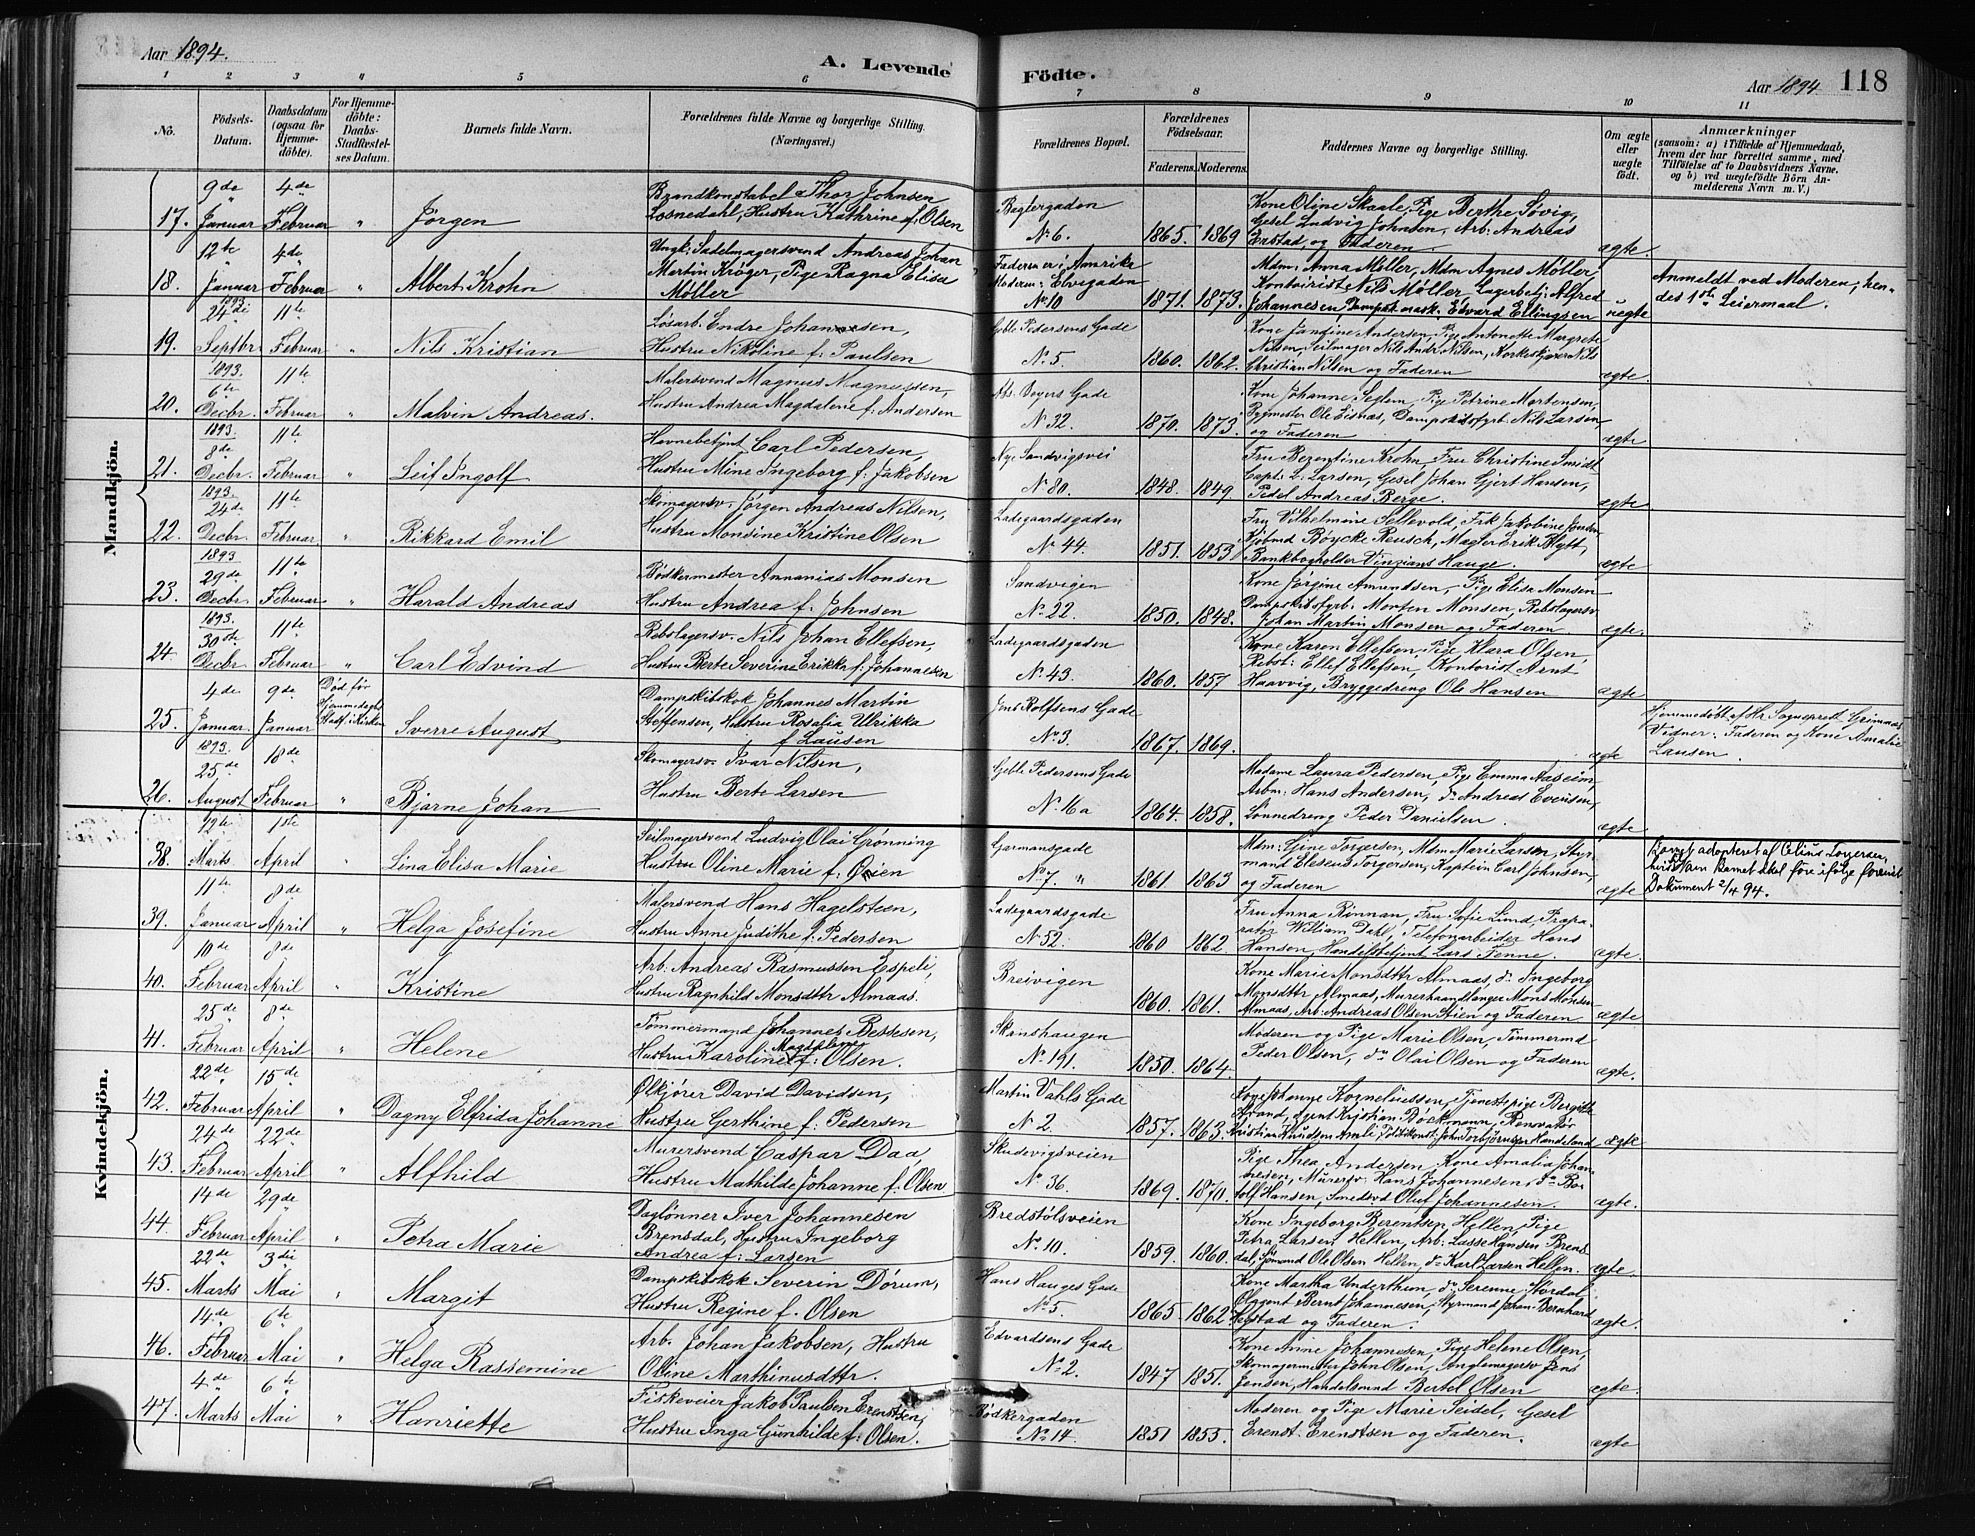 Aar 1894.
A. Levende Födte.
Aar 1894 118
1 2 3 4 5 6 7 8 9 10 11
No.
Födsels-Datum.
Daabsdatum (ogsaa for Hjemme-döbte).
For Hjemme-döbte: Daabs-Stadfæstel-ses Datum.
Barnets fulde Navn.
Forældrenes fulde Navne og borgerlige Stilling. (Næringsvei.)
Forældrenes Bopæl.
Forældrenes Födselsaar.
Faderens. Moderens.
Faddernes Navne og borgerlige Stilling.
Om ægte eller uægte födt.
Anmærkninger
(saasom: a) i Tilfælde af Hjemmedaab, hvem der har forrettet samme, med Tilföielse af to Daabsvidners Navne. og b) ved uægtefödte Börn An-melderens Navn m. V.)
Mandkjön.
17. 9de Januar 4de Februar " Jørgen
Brandkonstabel Thor Johnsen
Losnedahl, Hustru Kathrine f. Olsen
No 6. 1865. 1869
Kone Oline Skaale, Pige Berthe Søvig,
Gesel Ludvig Johnsen, Arb: Andreas
Enstad, og Faderen. ægte.
18. 12te Januar 4de Februar " Albert Krohn
Ungk: Sadelmagersvend Andreas Johan
Martin Krøger, Pige Ragna Elisa
Møller
Faderen er i Amerika
Moderen: Elvegaden
No 10 1871. 1873.
Mdm: Anna Møller, Mdm Agnes Møller
Kontorist Nils Møller, Lagerbetj: Alfred
Johannesen, Dampsk. mask. Edvard Ellingsen uægte
Anmeldt ved Moderen, hen-
des 1ste Leiermaal.
19. 1893. 24de Septbr. 11te Februar " Nils Kristian
Løsarb. Endre Johannesen,
Hustru Nikoline f: Paulsen
Geble Pedersens Gade
No 5. 1860. 1862.
Kone Jandine Andersen, Pige Antonette Margrete
Nilsen, Seilmager Nils Andr. Nilsen, Korkeskjærer Nils
Christian Nilsen og Faderen ægte.
20. 1893. 6te Decbr. 11te Februar " Malvin Andreas.
Malersvend Magnus Magnussen,
Hustru Andrea Magdalene f. Andersen
No 32. 1870. 1873.
Kone Johanne Siglem, Pige Petrine Mortensen,
Bygmester Ole Eisnæs, Dampskibsfyrb. Nils Larsen
og Faderen ægte
21. 1893. 8de Decbr. 11te Februar " Leif Ingolf
Havnebetjnt Carl Pedersen,
Hustru Mine Ingeborg f: Jakobsen
Nye Sandvigsvei
No 80. 1848. 1849
Fru Berentine Krohn, Fru Christine Smidt
Capt: L. Larsen, Gesel Johan Gjert Hansen,
Pedel Andreas Berge. ægte
22. 1893. 24de Decbr. 11te Februar " Rikkard Emil
Skomagersv. Jørgen Andreas Nilsen,
Hustru Monsine Kristine Olsen
Ladegaardsgaden
No 44. 1851. 1853
Fru Vilhelmine Sellevold, Frk Jakobine
Kjøbmd Bøycke Reusch, Magter Erik Blytt
Bankbogholder Vinzians Hauge. ægte
23. 1893 29de Decbr. 11te Februar " Harald Andreas
Bødkermester Annanias Monsen
Hustru Andrea f. Johnsen
Sandvigen
No 22. 1850. 1848.
Kone Jørgine Amundsen, Pige Elisa Monsen
Dampskibsfyrb. Morten Monsen, Rebslagersv
Johan Martin Monsen og Faderen. ægte.
24. 1893. 30de Decbr. 11te Februar " Carl Edvind
Rebslagersv. Nils Johan Ellefsen,
Hustru Berte Severine Erikka f: Johannesen
Ladegaardsgaden
No 43. 1860. 1857
Kone Karen Ellefsen, Pige Klara Olsen
Rebsl: Ellef Ellefsen, Kontorist Arnt
Haavvig, Bryggedreng Ole Hansen ægte
25. 4de Januar. 9de Januar Død før Hjemmedaabs Stadf. i Kirken Sverre August
Dampskibskok Johannes Martin
Steffensen, Hustru Rosalia Ulrikka
f. Lausen
Jens Rolfsens Gade
No 3. 1867. 1869. ægte
Hjemmedøbt af Hr. Sogneprest Grimnæs
Vidner: Faderen og Kone Amalie
Lausen.
26. 1893. 25de August 18de Februar " Bjarne Johan
Skomagersv. Ivar Nilsen,
Hustru Berte Larsen
Geble Pedersens Gade
1864. 1858.
Madame Laura Pedersen, Pige Emma Aaseim,
Arbm: Hans Andersen, do Andreas Evensen,
Lønnedreng Peder Danielsen. ægte
Kvindekjön.
38. 12te Marts 1ste April " Lina Elisa Marie
Seilmagersvend Ludvig Olai Grønning
Hustru Oline Marie f: Øien
Garmansgade
No 7. " 1861 1863
Mdm: Gine Torgersen, Mdm Marie Larsen, Styr-
mand Eleseus Torgersen, Kaptein Carl Johnsen,
og Faderen ægte
Barnet adopteret af Torgersen,
hvis Navn Barnet skal føre ifølge forevist
Dokument 2/4 94.
39. 11te Januar 8de April " Helga Josefine
Malersvend Hans Hagelsteen,
Hustru Anne Judithe f. Pedersen
Ladegaardsgade
No 52. 1860 1862
Fru Anna Rinnan, Fru Sofie Lund, Præpa-
rator William Dahl, Telefonarbeider Hans
Hansen, Handelsbetjent Lars Tenne. ægte.
40. 10de Februar 8de April " Kristine
Arb: Andreas Rasmussen Espeli,
Hustru Ragnhild Monsdttr Almaas.
Breivigen
1860. 1861.
Kone Marie Monsdttr Almaas, do Ingeborg
Monsdttr Almaas, Murerhaandlanger Mons Monsen
Almaas, Arb: Andreas Olsen Stien og Faderen ægte
41. 25de Februar 8de April " Helene
Tømmermand Johannes Bertesen,
Hustru Karoline Magdalene f: Olsen.
Skanshaugen
No 191. 1850. 1864.
Moderen og Pige Marie Olsen, Tømmermd
Peder Olsen, do Olai Olsen og Faderen ægte.
42. 22de Februar 15de April " Dagny Elfrida Johanne
Ølkjører David Davidsen,
Hustru Gerthine f. Pedersen
Martin Vahls Gade
No 2. 1857. 1863
Kogeskone Kornelinssen, Tjenestepige Bergithe
Strand, Agent Kristian Bøckmann, Renovatør
Kristian Knudsen Amli Politikonst: John Torbjørnsen Handeland ægte
43. 24de Februar 22de April " Alfhild
Murersvend Caspar Daa,
Hustru Mathilde Johanne f. Olsen
Skudevigsveien
No 36. 1869. 1870.
Pige Thea Andersen, Kone Amalia Johan-
nesen, Murersv. Hans Johannesen, do Ro-
dolf Hansen, Smedsvd Oluf Johannesen. ægte.
44. 14de Februar 29de April " Petra Marie
Daglønner Iver Johannesen
Brensdal, Hustru Ingeborg
Andrea f: Larsen
Bredstølsveien
No 10. 1859. 1860.
Kone Ingeborg Berentsen Hellen, Pige
Petra Larsen Hellen, Arb: Lasse Hansen Brens-
dal, Sjømand Ole Olsen Hellen, do Karl Larsen Hellen. ægte.
45. 22de Marts 3die Mai " Margit
Dampskibskok Severin Dørum,
Hustru Regine f. Olsen
Hans Hauges Gade
No 5. 1865. 1862
Kone Martha Underthun, do Serenne Stordal
Ølagent Bernt Johannesen, Styrmand Johan Bernhard
Hegstad og Faderen. ægte.
46. 14de Februar 6te Mai " Helga Rassemine
Arb. Johan Jakobsen, Hustru
Oline Marthinusdttr.
Edvardsens Gade
No 2. 1847 1851.
Kone Anne Johannesen, Pige Helene Olsen,
Skomagermester John Olsen, Anglemagersv Jens
Jensen, Handelsmnd Bertel Olsen ægte.
47. 4de Marts 6te Mai " Henriette
Fiskeveier Jakob Paulsen Erendtsen,
Hustru Inga Gunhilde f: Olsen.
Bødkergaden
No 14. 1851 1853.
Moderen og Pige Marie Seidel, Gesel
Erendt. Erendtsen og Faderen. ægte